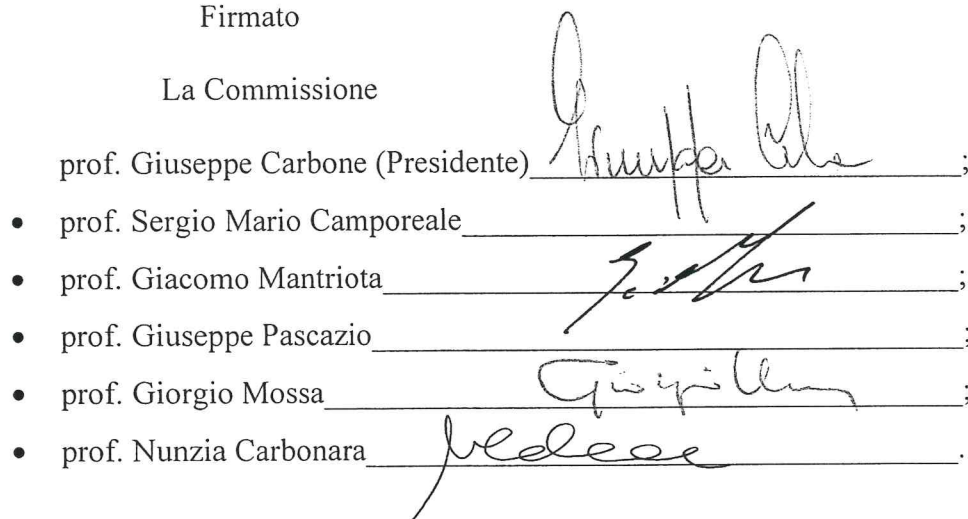 Firmato
La Commissione
prof. Giuseppe Carbone (Presidente) ;
• prof. Sergio Mario Camporeale ;
• prof. Giacomo Mantriota ;
• prof. Giuseppe Pascazio ;
• prof. Giorgio Mossa Giorgio ;
• prof. Nunzia Carbonara .